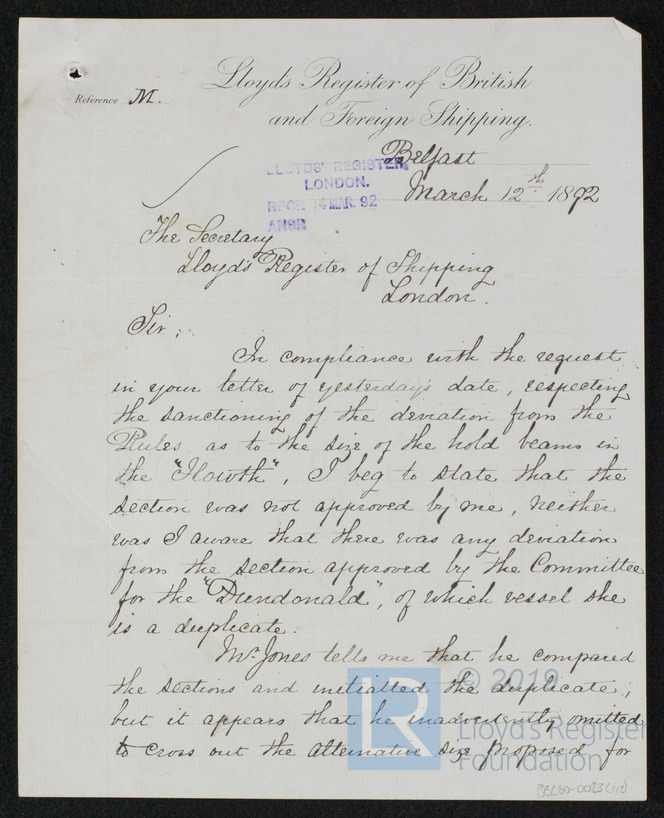 Lloyds Register of British
and Foreign Shipping.
Reference M.
Belfast
March 12th 1892
LLOYDS' REGISTER,
LONDON.
RECD. 14 MAR. 92
ANSD
The Secretary
Lloyd's Register of Shipping
London.
Sir,
In compliance with the request
in your letter of yesterday's date, respecting
the sanctioning of the deviation from the
Rules as to the size of the hold beams in
the "Howth", I beg to state that the
section was not approved by me, neither
was I aware that there was any deviation
from the section approved by the Committee
for the "Dundonald", of which vessel she
is a duplicate.
Mr. Jones tells me that he compared
the sections and initialled the duplicate;
but it appears that he inadvertently omitted
to cross out the alternative size proposed for
© 2019
LR
Lloyd's Register
Foundation